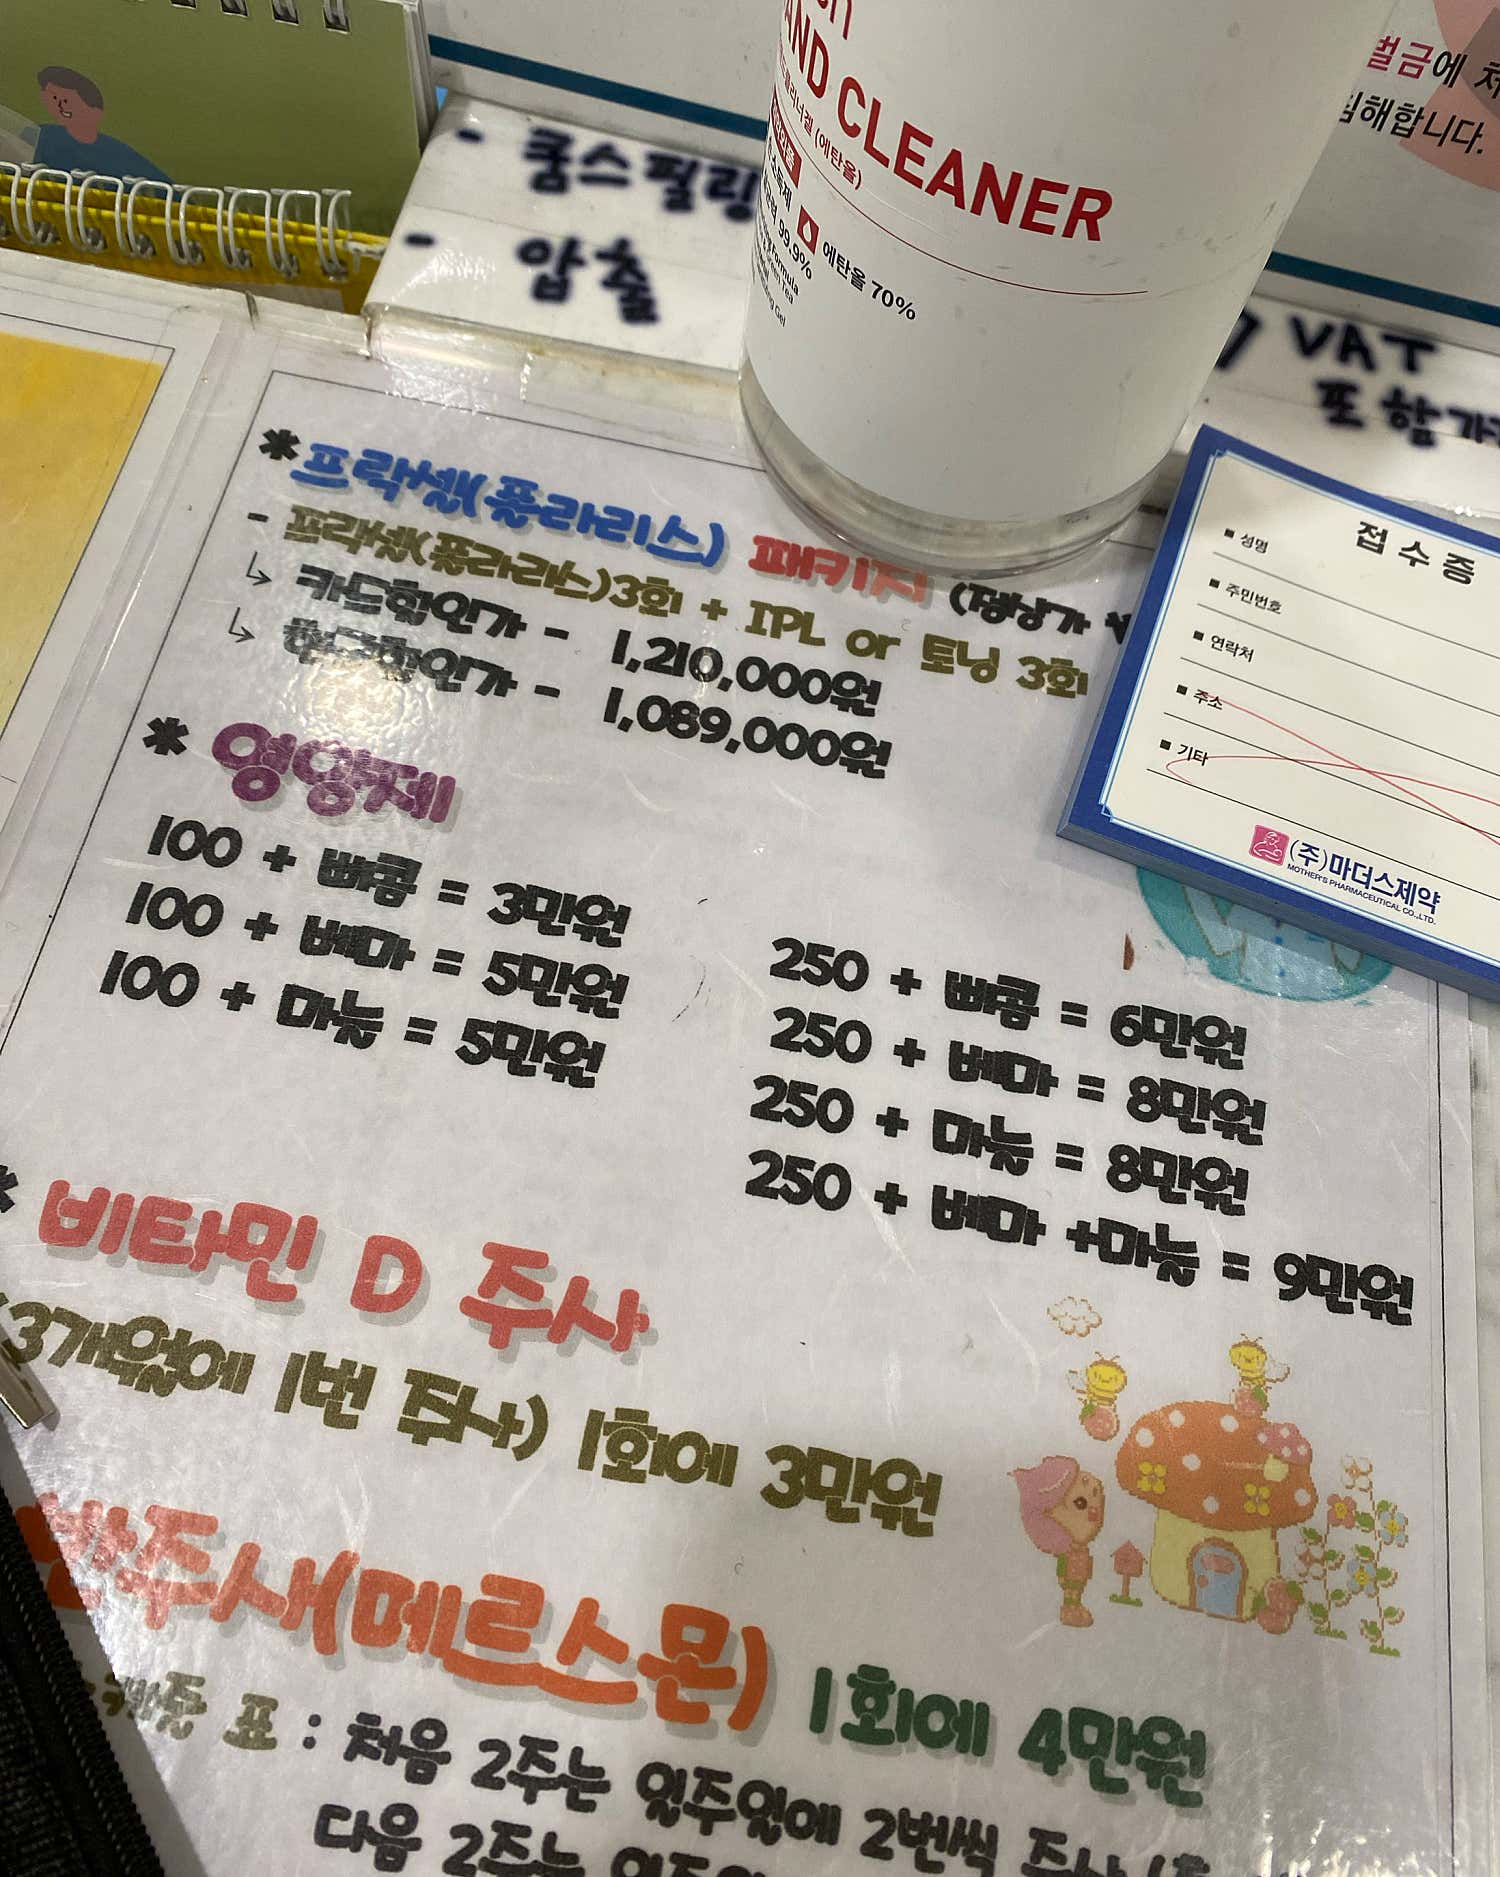 벌금에
림해합니다.
AND CLEANER
(에탄올)
99.9%
에탄올 70%
- 쿰스필링
- 압출
VAT
포함가
* 프락셀(플라리스) 패키지 (정상가
- 프락셀(플라리스)3회 + IPL or 토닝 3회
↳ 카드할인가 - 1,210,000원
↳ 현금할인가 - 1,089,000원
접수증
■ 성명
■ 주민번호
■ 연락처
■ 주소
■ 기타
(주)마더스제약
MOTHER'S PHARMACEUTICAL CO.,LTD.
* 영양제
100 + 빠콩 = 3만원
100 + 베마 = 5만원
100 + 마늘 = 5만원
250 + 빠콩 = 6만원
250 + 베마 = 8만원
250 + 마늘 = 8만원
250 + 베마 +마늘 = 9만원
* 비타민 D 주사
(3개월에 1번 주사) 1회에 3만원
주사(메르스몬) 1회에 4만원
표 : 처음 2주는 일주일에 2번씩 주사
다음 2주는